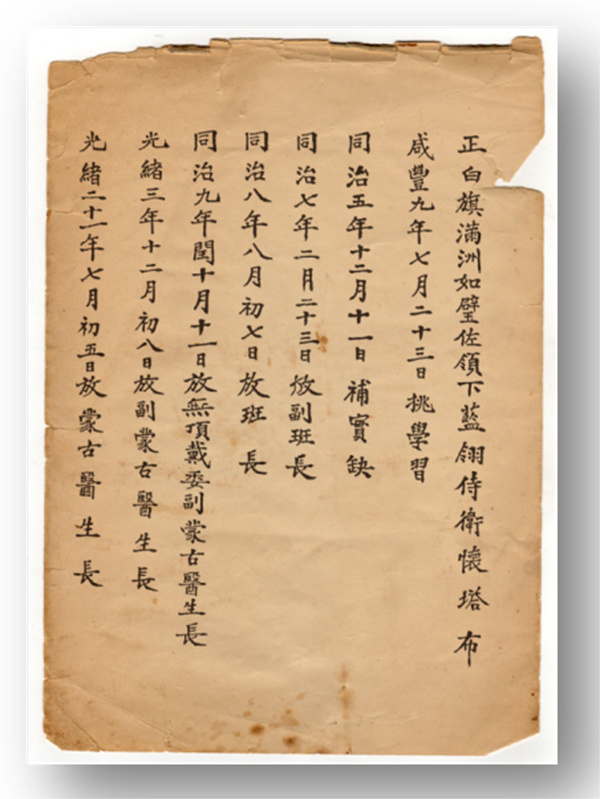 正白旗滿洲如璧佐領下藍翎侍衛懷塔布
咸豐九年七月二十三日挑學習
同治五年十二月十一日補實缺
同治七年二月二十三日放副班長
同治八年八月初七日放班長
同治九年閏十月十一日放無頂戴委副蒙古醫生長
光緒三年十二月初八日放副蒙古醫生長
光緒二十一年七月初五日放蒙古醫生長